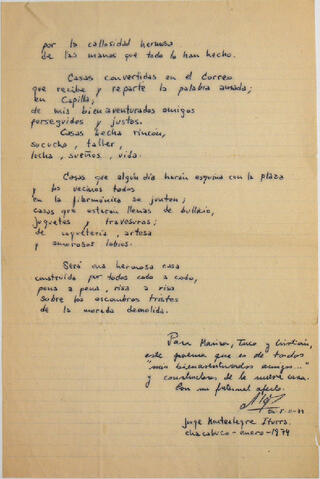 por la callosidad hermosa
de las manos que todo lo han hecho.
Casas convertidas en el Correo
que recibe y reparte la palabra amada;
en Capilla,
de mis bienaventurados amigos
perseguidos y justos.
Casas hecha rincón,
sucucho, taller,
lucha, sueños, vida.
Casas que algún día harán esquina con la plaza
y los vecinos todos
en la filarmónica se junten;
casas que estarán llenas de bullicio,
juguetes y travesuras;
de coquetería, artesa
y amorosos labios.
Será una hermosa casa
construida por todos codo a codo,
pena a pena, risa a risa
sobre los escombros tristes
de la morada demolida.
Para Marisa, Tuco y Cristián,
este poema que es de todos
"mis bienaventurados amigos..."
y constructores de la nueva casa.
Con mi fraternal afecto.
Jorge Montealegre Iturra.
Chacabuco - enero - 1974